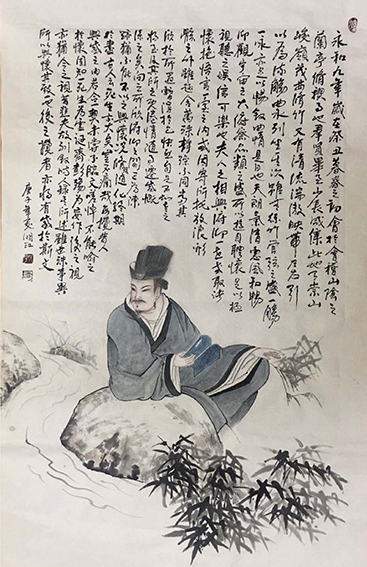 永和九年歲在癸丑暮春之初會於會稽山陰之
蘭亭修禊事也群賢畢至少長咸集此地有崇山
峻嶺茂林修竹又有清流激湍映帶左右引
以為流觴曲水列坐其次雖無絲竹管弦之盛一觴
一詠亦足以暢敘幽情是日也天朗氣清惠風和暢
仰觀宇宙之大俯察品類之盛所以遊目騁懷足以極
視聽之娛信可樂也夫人之相與俯仰一世或取諸
懷抱悟言一室之內或因寄所托放浪形
骸之外雖趣舍萬殊靜躁不同當其
欣於所遇暫得於己快然自足不知老之
將至及其所之既倦情隨事遷感慨
係之矣向之所欣俯仰之間已為陳
跡猶不能不以之興懷況修短隨化終期
於盡古人云死生亦大矣豈不痛哉每攬昔人
興感之由若合一契未嘗不臨文嗟悼不能喻之
於懷固知一死生為虛誕齊彭殤為妄作後之視
今亦猶今之視昔悲夫故列敘時人錄其所述雖世殊事異
所以興懷其致一也後之攬者亦將有感於斯文
庚子